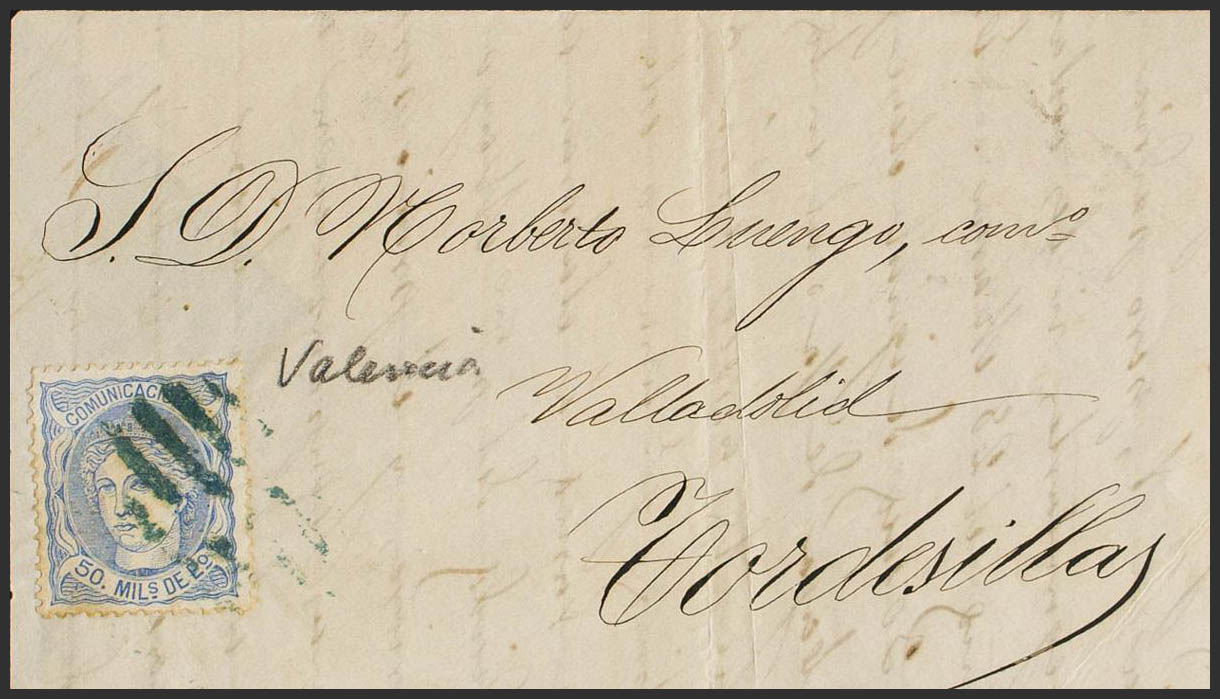 S. D. Norberto Luengo, comº
Valencia
Valladolid
Tordesillas
COMUNICACI
50. MILS DE Eº